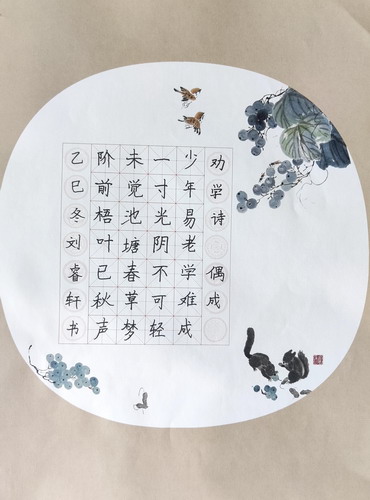 劝学诗 偶成
少年易老学难成
一寸光阴不可轻
未觉池塘春草梦
阶前梧叶已秋声
乙巳冬刘睿轩书